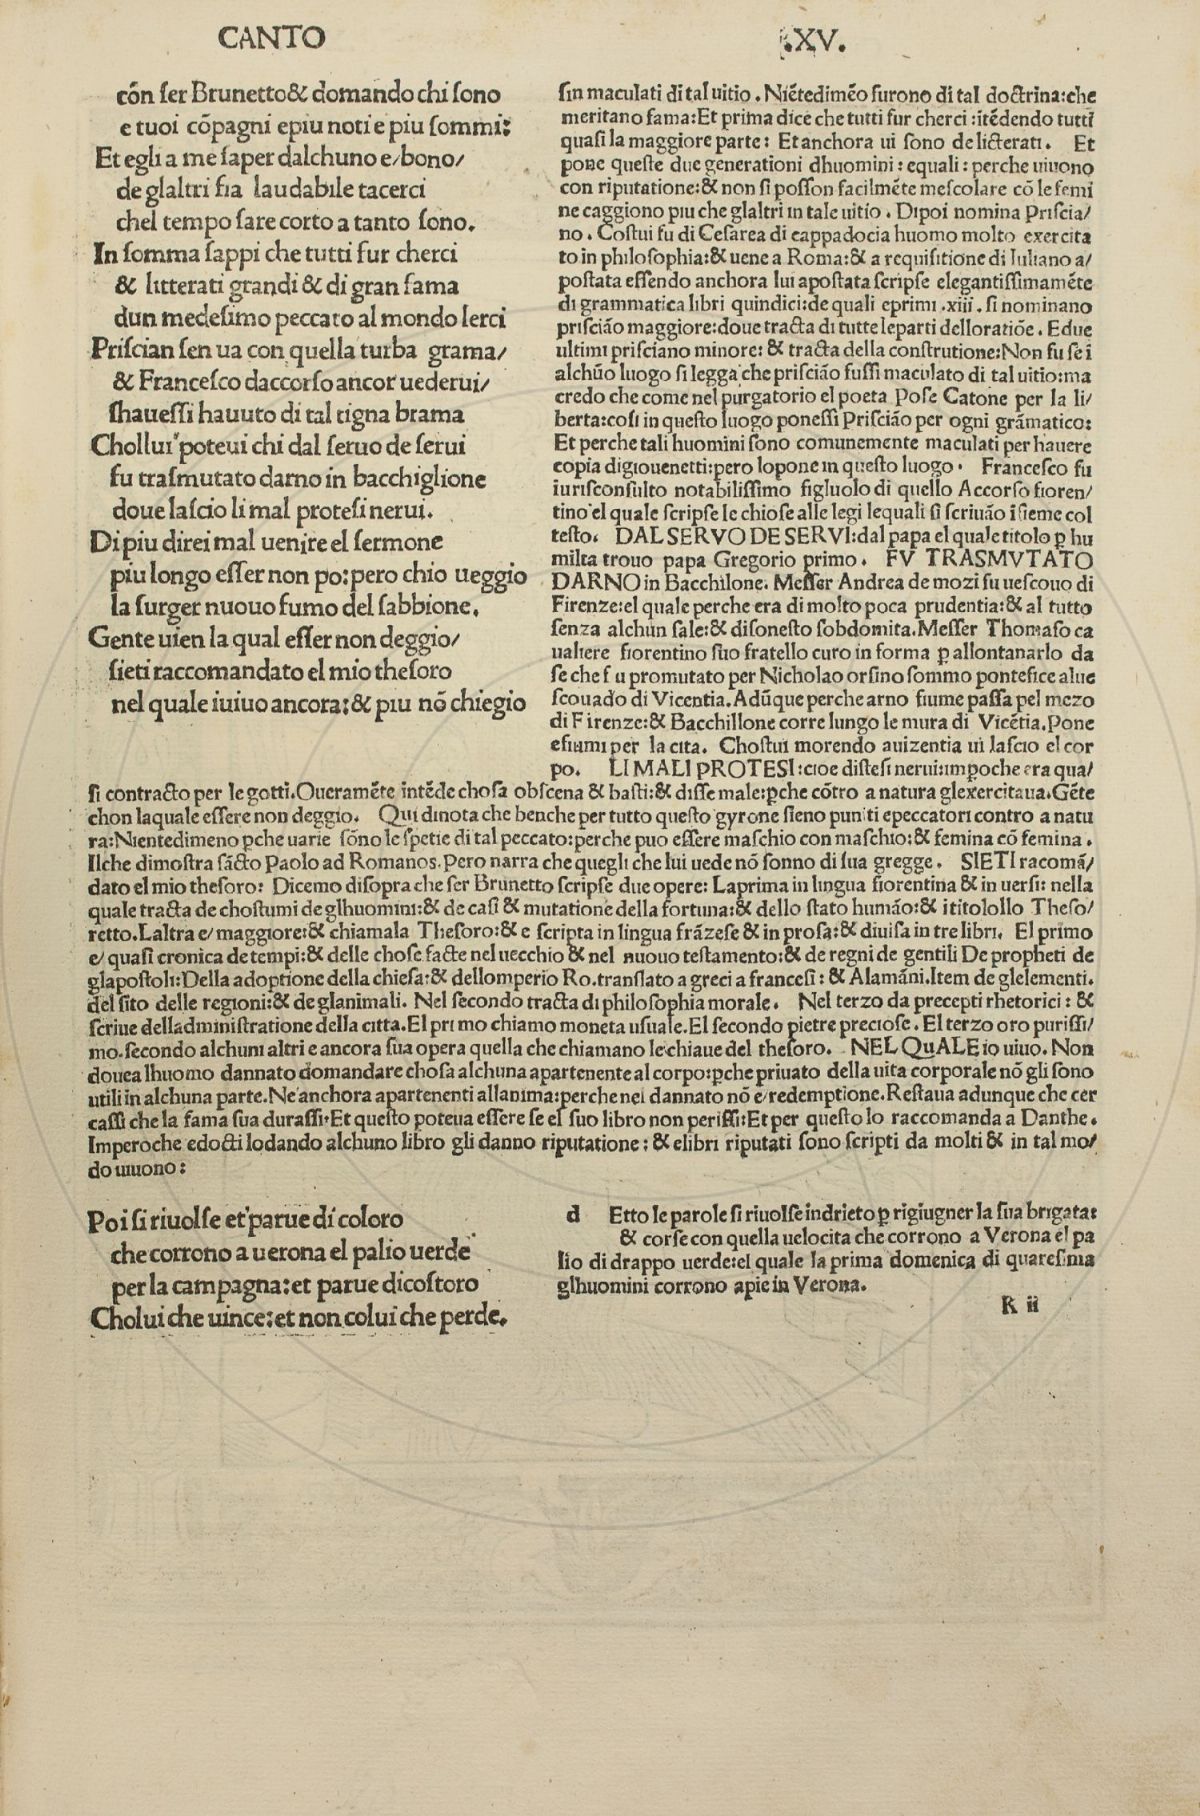 CANTO
.XV.
cōn ser Brunetto & domando chi sono
e tuoi cōpagni e piu noti e piu sommi:
Et egli a me saper dalchuno e/ bono/
de glaltri fia laudabile tacerci
chel tempo sare corto a tanto sono.
In somma sappi che tutti fur cherci
& litterati grandi & di gran fama
dun medesimo peccato al mondo lerci
Priscian sen ua con quella turba grama/
& Francesco daccorso ancor uederui/
shauessi hauuto di tal tigna brama
Chollui poteui chi dal seruo de serui
fu trasmutato darno in bacchiglione
doue lascio li mal protesi nerui.
Di piu direi mal uenire el sermone
piu longo esser non po: pero chio ueggio
la surger nuouo fumo del sabbione.
Gente uien la qual esser non deggio/
sieti raccomandato el mio thesoro
nel quale iuiuo ancora: & piu nō chiegio
sin maculati di tal uitio. Niētedimēo furono di tal doctrina: che
meritano fama: Et prima dice che tutti fur cherci: itēdendo tutti
quasi la maggiore parte: Et anchora ui sono de licterati. Et
pone queste due generationi dhuomini: equali: perche uiuono
con riputatione: & non si posson facilmēte mescolare cō le femi
ne caggiono piu che glaltri in tale uitio. Dipoi nomina Priscia/
no. Costui fu di Cesarea di cappadocia huomo molto exercita
to in philosophia: & uene a Roma: & a requisitione di Iuliano a/
postata essendo anchora lui apostata scripse elegantissimamēte
di grammatica libri quindici: de quali eprimi .xiii. si nominano
prisciāo maggiore: doue tracta di tutte leparti delloratiōe. Edue
ultimi prisciano minore: & tracta della construtione: Non fu se ī
alchūo luogo si legga che prisciāo fussi maculato di tal uitio: ma
credo che come nel purgatorio el poeta Pose Catone per la li/
berta: cosi in questo luogo ponessi Prisciāo per ogni grāmatico:
Et perche tali huomini sono comunemente maculati per hauere
copia digiouenetti: pero lopone in questo luogo. Francesco fu
iurisconsulto notabilissimo figluolo di quello Accorso fioren/
tino el quale scripse le chiose alle legi lequali si scriuāo īsieme col
testo. DAL SERVO DE SERVI: dal papa el quale titolo ꝑ hu
milta trouo papa Gregorio primo. FV TRASMVTATO
DARNO in Bacchilone. Messer Andrea de mozi fu uescouo di
Firenze: el quale perche era di molto poca prudentia: & al tutto
senza alchun sale: & disonesto sobdomita. Messer Thomaso ca
ualiere fiorentino suo fratello curo in forma ꝑ allontanarlo da
se che fu promutato per Nicholao orsino sommo pontefice alue
scouado di Vicentia. Adūque perche arno fiume passa pel mezo
di Firenze: & Bacchillone corre lungo le mura di Vicētia. Pone
efiumi per la cita. Chostui morendo auizentia ui lascio el cor
po. LI MALI PROTESI: cioe distesi nerui: impoche era qua/
si contracto per le gotti. Oueramēte intēde chosa obscena & basti: & disse male: ꝑche cōtro a natura glexercitaua. Gēte
chon laquale essere non deggio. Qui dinota che benche per tutto questo gyrone sieno puniti epeccatori contro a natu
ra: Nientedimeno ꝑche uarie sōno le spetie di tal peccato: perche puo essere maschio con maschio: & femina cō femina.
Ilche dimostra sācto Paolo ad Romanos. Pero narra che quegli che lui uede nō sonno di sua gregge. SIETI racomā/
dato el mio thesoro: Dicemo disopra che ser Brunetto scripse due opere: Laprima in lingua fiorentina & in uersi: nella
quale tracta de chostumi de glhuomini: & de casi & mutatione della fortuna: & dello stato humāo: & ititolollo Theso/
retto. Laltra e/ maggiore: & chiamala Thesoro: & e scripta in lingua frāzese & in prosa: & diuisa in tre libri. El primo
e/ quasi cronica de tempi: & delle chose facte nel uecchio & nel nuouo testamento: & de regni de gentili De propheti de
glapostoli: Della adoptione della chiesa: & dellomperio Ro. translato a greci a francesi: & Alamāni. Item de glelementi.
del sito delle regioni: & de glanimali. Nel secondo tracta di philosophia morale. Nel terzo da precepti rhetorici: &
scriue delladministratione della citta. El primo chiamo moneta usuale. El secondo pietre preciose. El terzo oro purissi/
mo. secondo alchuni altri e ancora sua opera quella che chiamano le chiaue del thesoro. NEL QuALE io uiuo. Non
douea lhuomo dannato domandare chosa alchuna apartenente al corpo: ꝑche priuato della uita corporale nō gli sono
utili in alchuna parte. Ne anchora apartenenti allanima: perche nel dannato nō e/ redemptione. Restaua adunque che cer
cassi che la fama sua durassi. Et questo poteua essere se el suo libro non perissi: Et per questo lo raccomanda a Danthe.
Imperoche edocti lodando alchuno libro gli danno riputatione: & elibri riputati sono scripti da molti & in tal mo/
do uiuono:
Poi si riuolse et parue di coloro
che corrono a uerona el palio uerde
per la campagna: et parue dicostoro
Cholui che uince: et non colui che perde.
d Etto le parole si riuolse indrieto ꝑ rigiugner la sua brigata:
& corse con quella uelocita che corrono a Verona el pa
lio di drappo uerde: el quale la prima domenica di quaresima
glhuomini corrono apie in Verona.
R ii